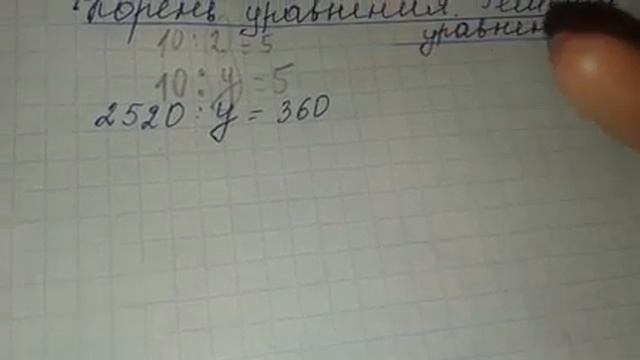 Корень уравнения.
уравнен
10 : 2 = 5
10 : y = 5
2520 : y = 360